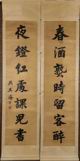 春酒熟時留客醉
夜鐙紅處課兒書